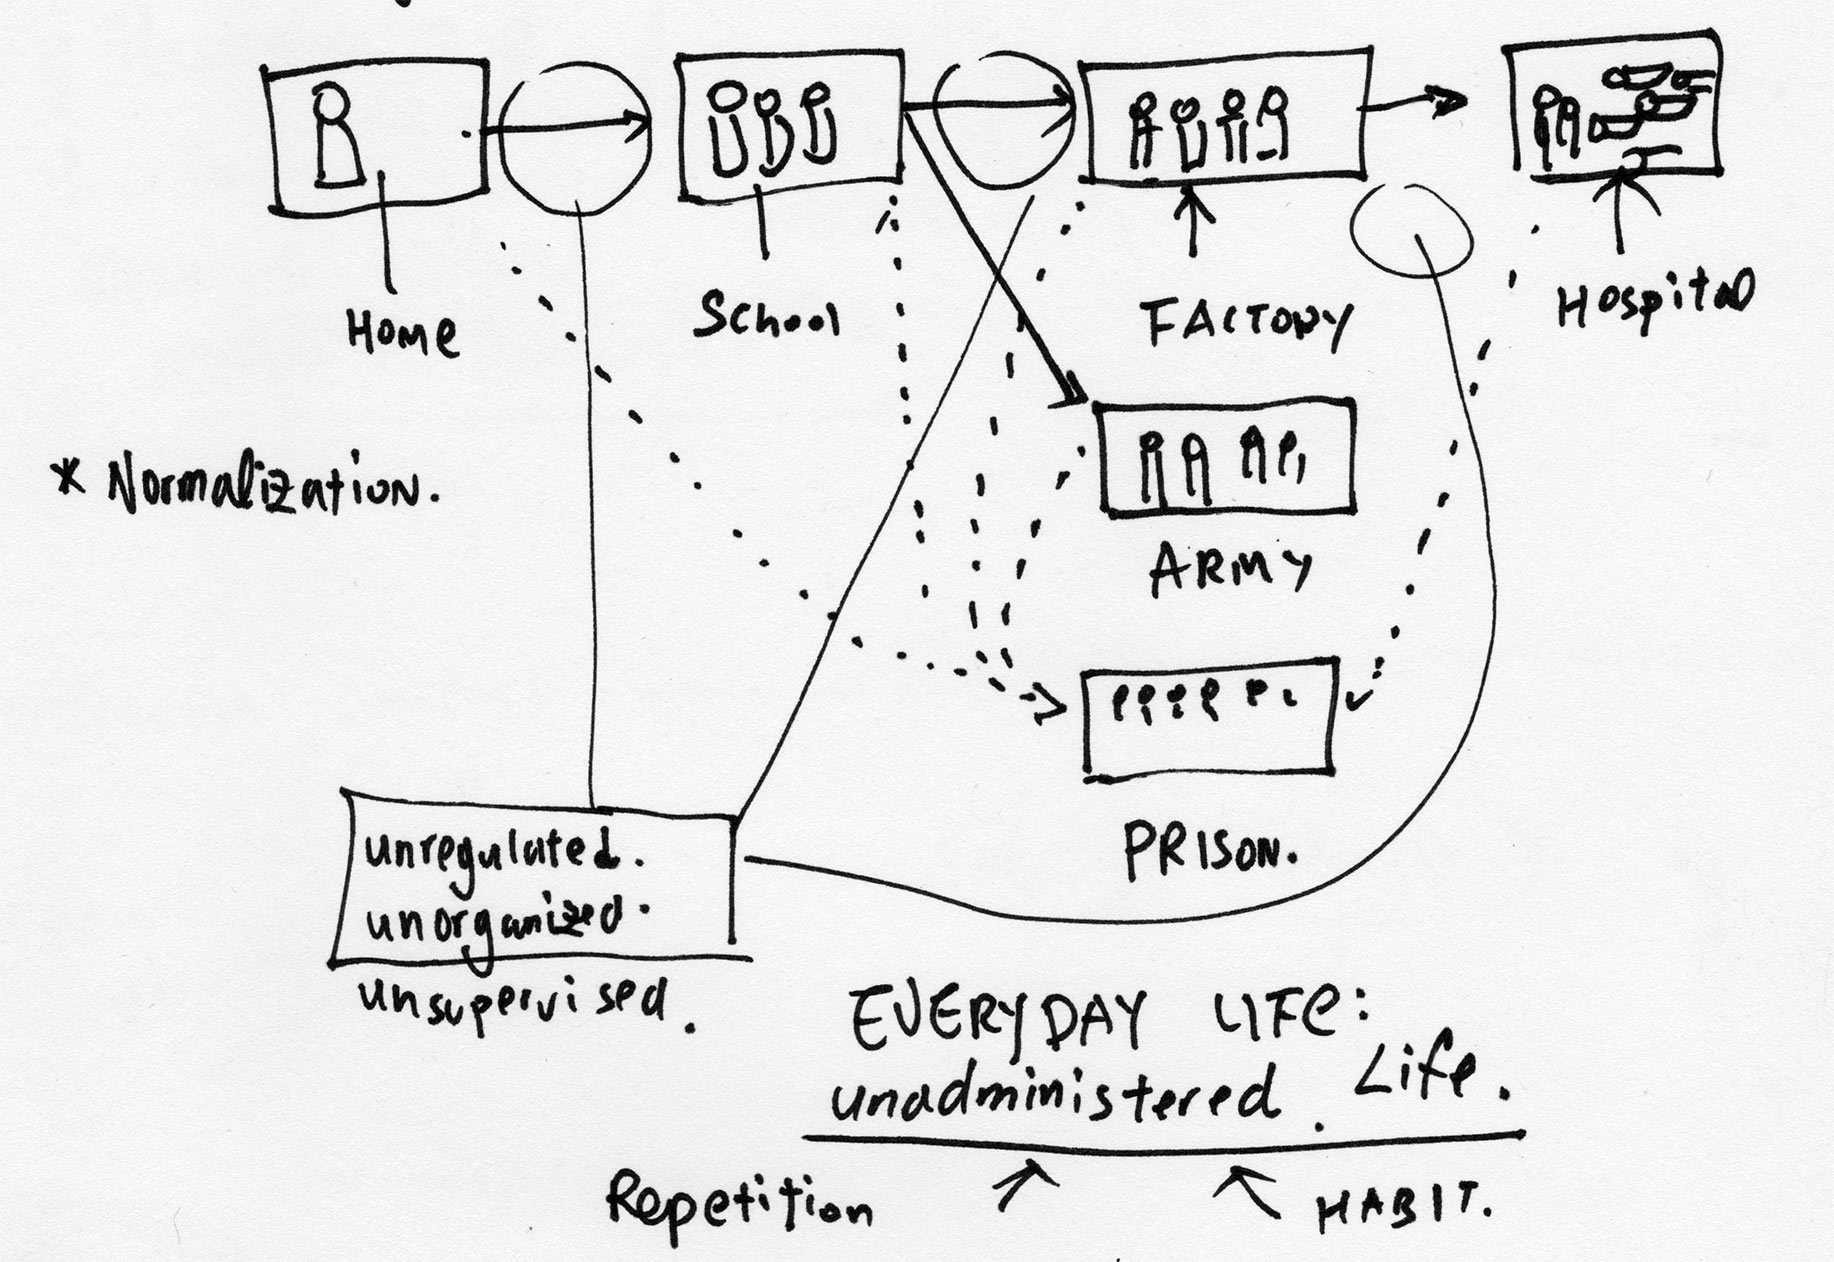 Home
School
FACTORY
Hospital
* Normalization.
ARMY
PRISON.
unregulated.
unorganized.
unsupervised.
EVERYDAY LIFE:
unadministered. Life.
Repetition
HABIT.